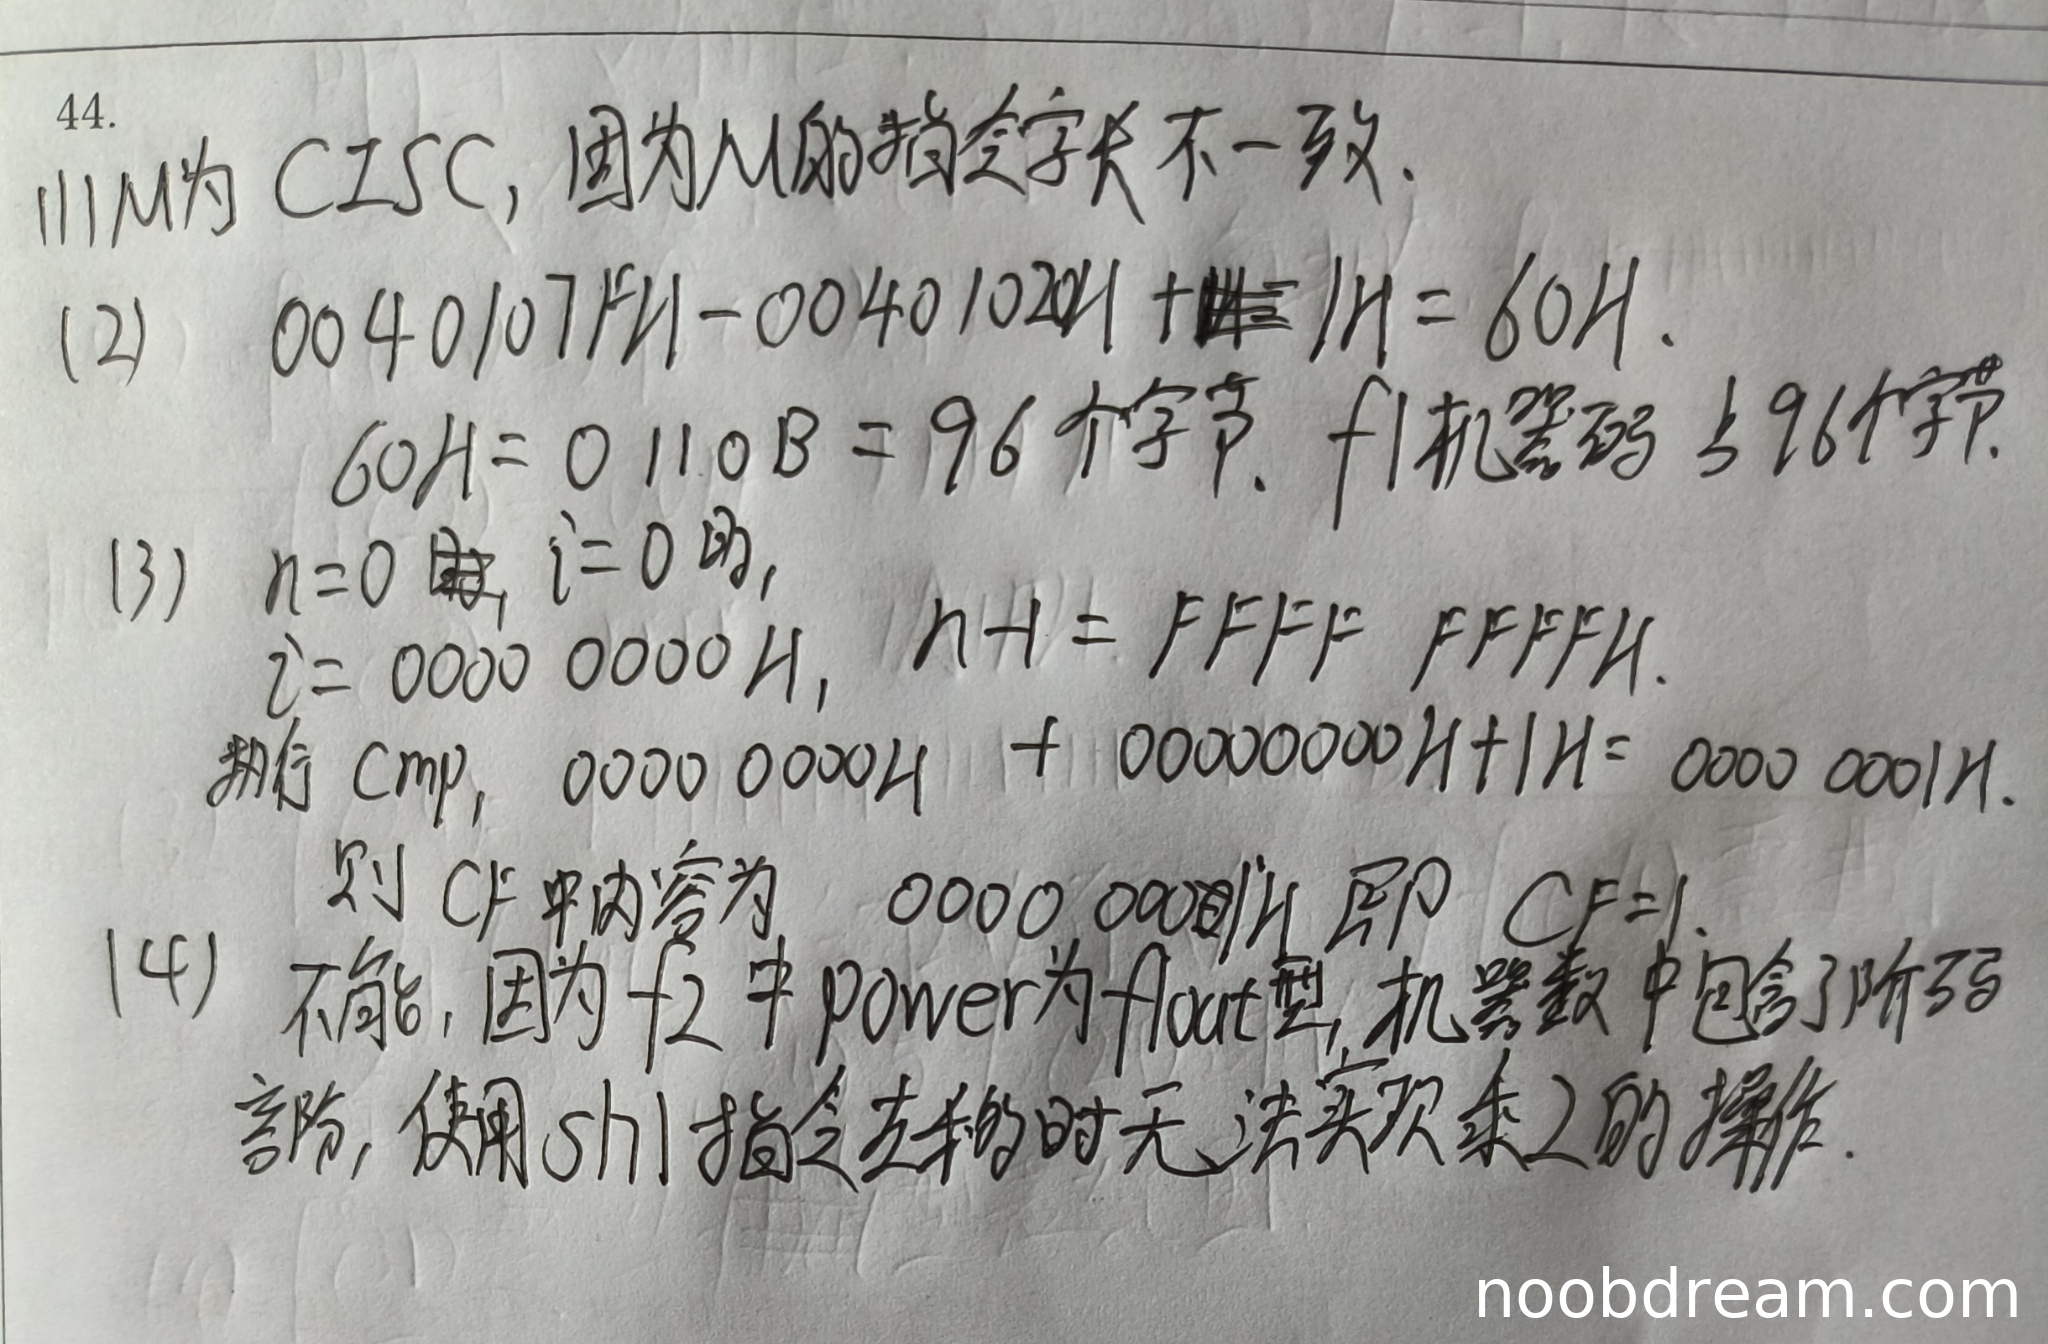 44.
(1) M为 CISC, 因为M的指令字长不一致.
(2) 0040107FH - 00401020H + 1H = 60H.
60H = 0110B = 96个字节. f1机器码占96个字节.
(3) n=0 , i=0 时,
i= 0000 0000H, n-1 = FFFF FFFFH.
执行 cmp, 0000 0000H + 00000000H+1H= 0000 0001H.
则 CF中内容为 0000 0001H 即 CF=1.
(4) 不能, 因为f2中power为float型, 机器数中包含了阶码
部分, 使用shl指令左移的时无法实现乘2的操作.
noobdream.com